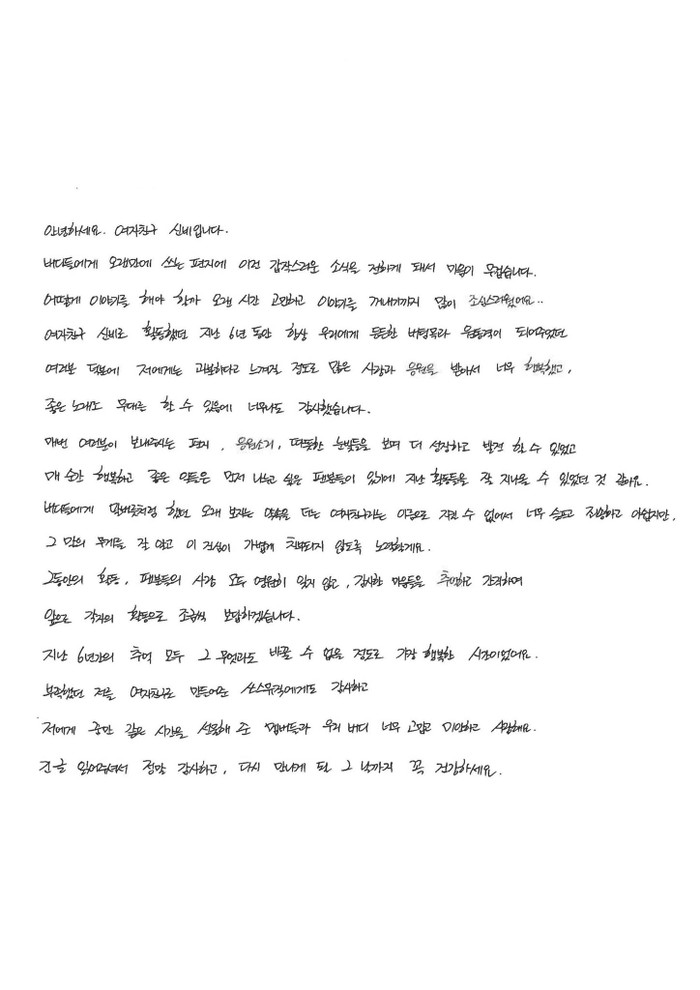 안녕하세요. 여자친구 신비입니다.
버디들에게 오랜만에 쓰는 편지에 이런 갑작스러운 소식을 전하게 돼서 마음이 무겁습니다.
어떻게 이야기를 해야 할까 오랜 시간 고민하고 이야기를 꺼내기까지 많이 조심스러웠어요..
여자친구 신비로 활동했던 지난 6년 동안 항상 우리에게 든든한 버팀목과 원동력이 되어주었던
여러분 덕분에 저에게는 과분하다고 느껴질 정도로 많은 사랑과 응원을 받아서 너무 행복했고,
좋은 노래로 무대를 할 수 있음에 너무나도 감사했습니다.
매번 여러분이 보내주시는 편지, 응원소리, 따뜻한 눈빛들을 보며 더 성장하고 발전 할 수 있었고
매 순간 행복하고 좋은 것들은 먼저 나누고 싶은 팬분들이 있기에 지난 활동들을 잘 지나올 수 있었던 것 같아요.
버디들에게 말버릇처럼 했던 오래 보자는 약속을 더는 여자친구라는 이름으로 지킬 수 없어서 너무 슬프고 죄송하고 아쉽지만,
그 말의 무게를 잘 알고 이 진심이 가볍게 치부되지 않도록 노력할게요.
그동안의 활동, 팬분들의 사랑 모두 영원히 잊지 않고, 감사한 마음들을 추억하고 간직하며
앞으로 각자의 활동으로 조금씩 보답하겠습니다.
지난 6년간의 추억 모두 그 무엇과도 바꿀 수 없을 정도로 가장 행복한 시간이었어요.
부족했던 저를 여자친구로 만들어준 쏘스뮤직에게도 감사하고
저에게 좋은 시간을 선물해 준 멤버들과 우리 버디 너무 고맙고 미안하고 사랑해요.
긴 글 읽어주셔서 정말 감사하고, 다시 만나게 될 그 날까지 꼭 건강하세요.